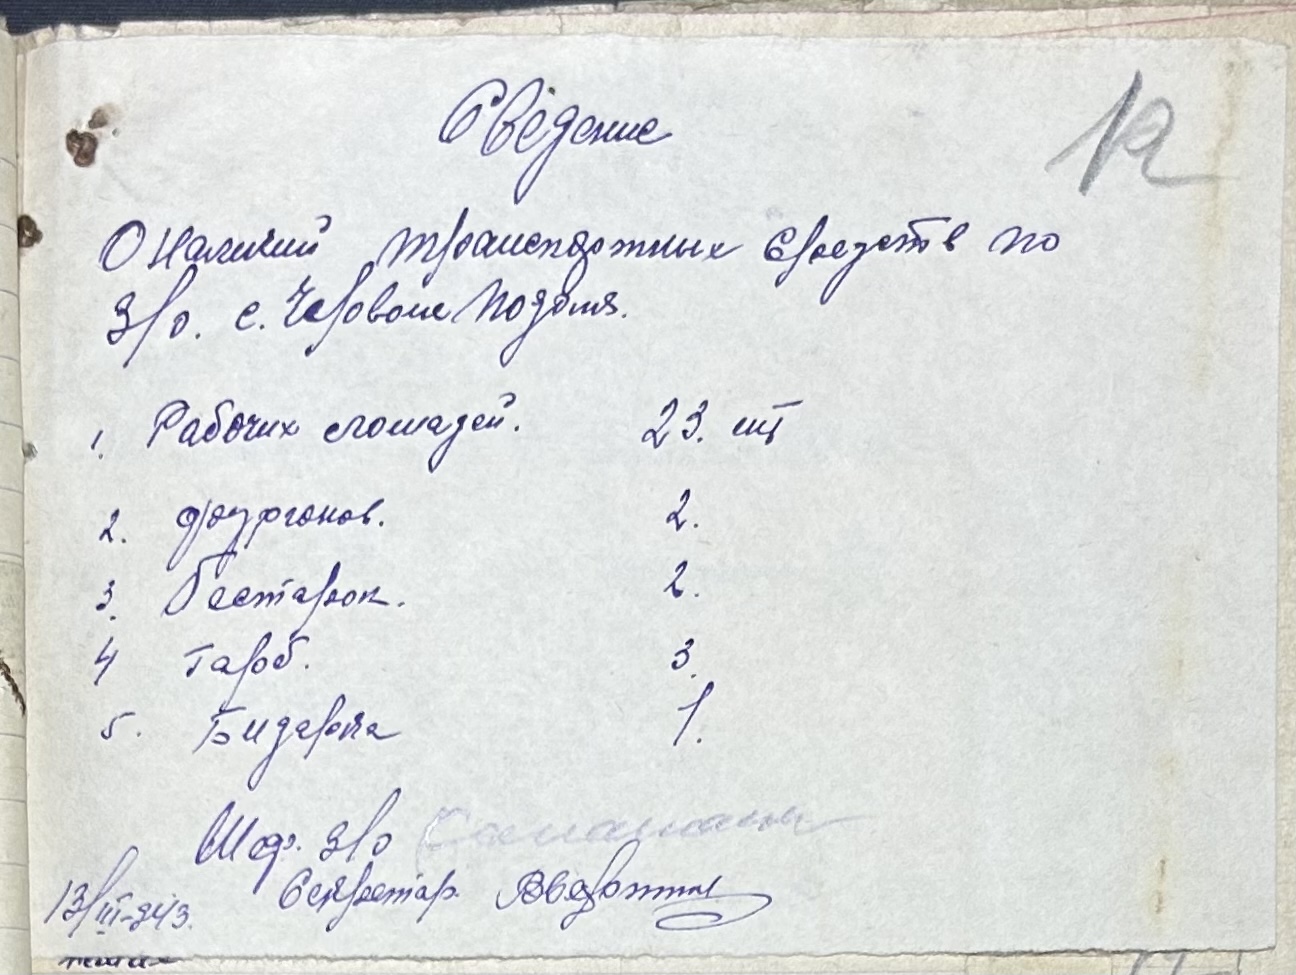 Сведение
12
О наличий транспортных средств по
З/о. с. Червоне Поздня.
1. Рабочих лошадей. 23. шт
2. фургонов. 2.
3. Бестарок. 2.
4 гарб. 3.
5. Бидарка 1.
Шеф. З/о
Секретар
13/III-943.